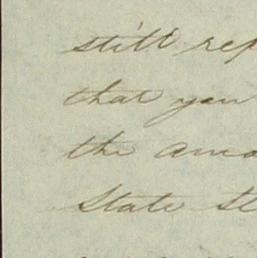 still rep
that you
the amo
State St